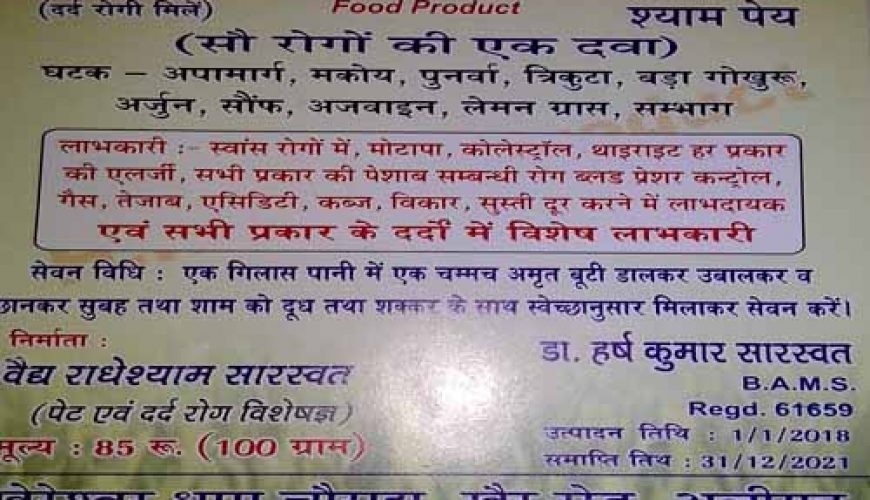 (दर्द रोगी मिलें) Food Product श्याम पेय
(सौ रोगों की एक दवा)
घटक – अपामार्ग, मकोय, पुनर्वा, त्रिकुटा, बड़ा गोखुरू,
अर्जुन, सौंफ, अजवाइन, लेमन ग्रास, सम्भाग
लाभकारी :- स्वांस रोगों में, मोटापा, कोलेस्ट्रॉल, थाइराइट हर प्रकार
की एलर्जी, सभी प्रकार की पेशाब सम्बन्धी रोग ब्लड प्रेशर कन्ट्रोल,
गैस, तेजाब, एसिडिटी, कब्ज, विकार, सुस्ती दूर करने में लाभदायक
एवं सभी प्रकार के दर्दों में विशेष लाभकारी
सेवन विधि : एक गिलास पानी में एक चम्मच अमृत बूटी डालकर उबालकर व
छानकर सुबह तथा शाम को दूध तथा शक्कर के साथ स्वेच्छानुसार मिलाकर सेवन करें।
निर्माता :
वैद्य राधेश्याम सारस्वत
(पेट एवं दर्द रोग विशेषज्ञ)
मूल्य : 85 रू. (100 ग्राम)
डा. हर्ष कुमार सारस्वत
B.A.M.S.
Regd. 61659
उत्पादन तिथि : 1/1/2018
समाप्ति तिथ : 31/12/2021